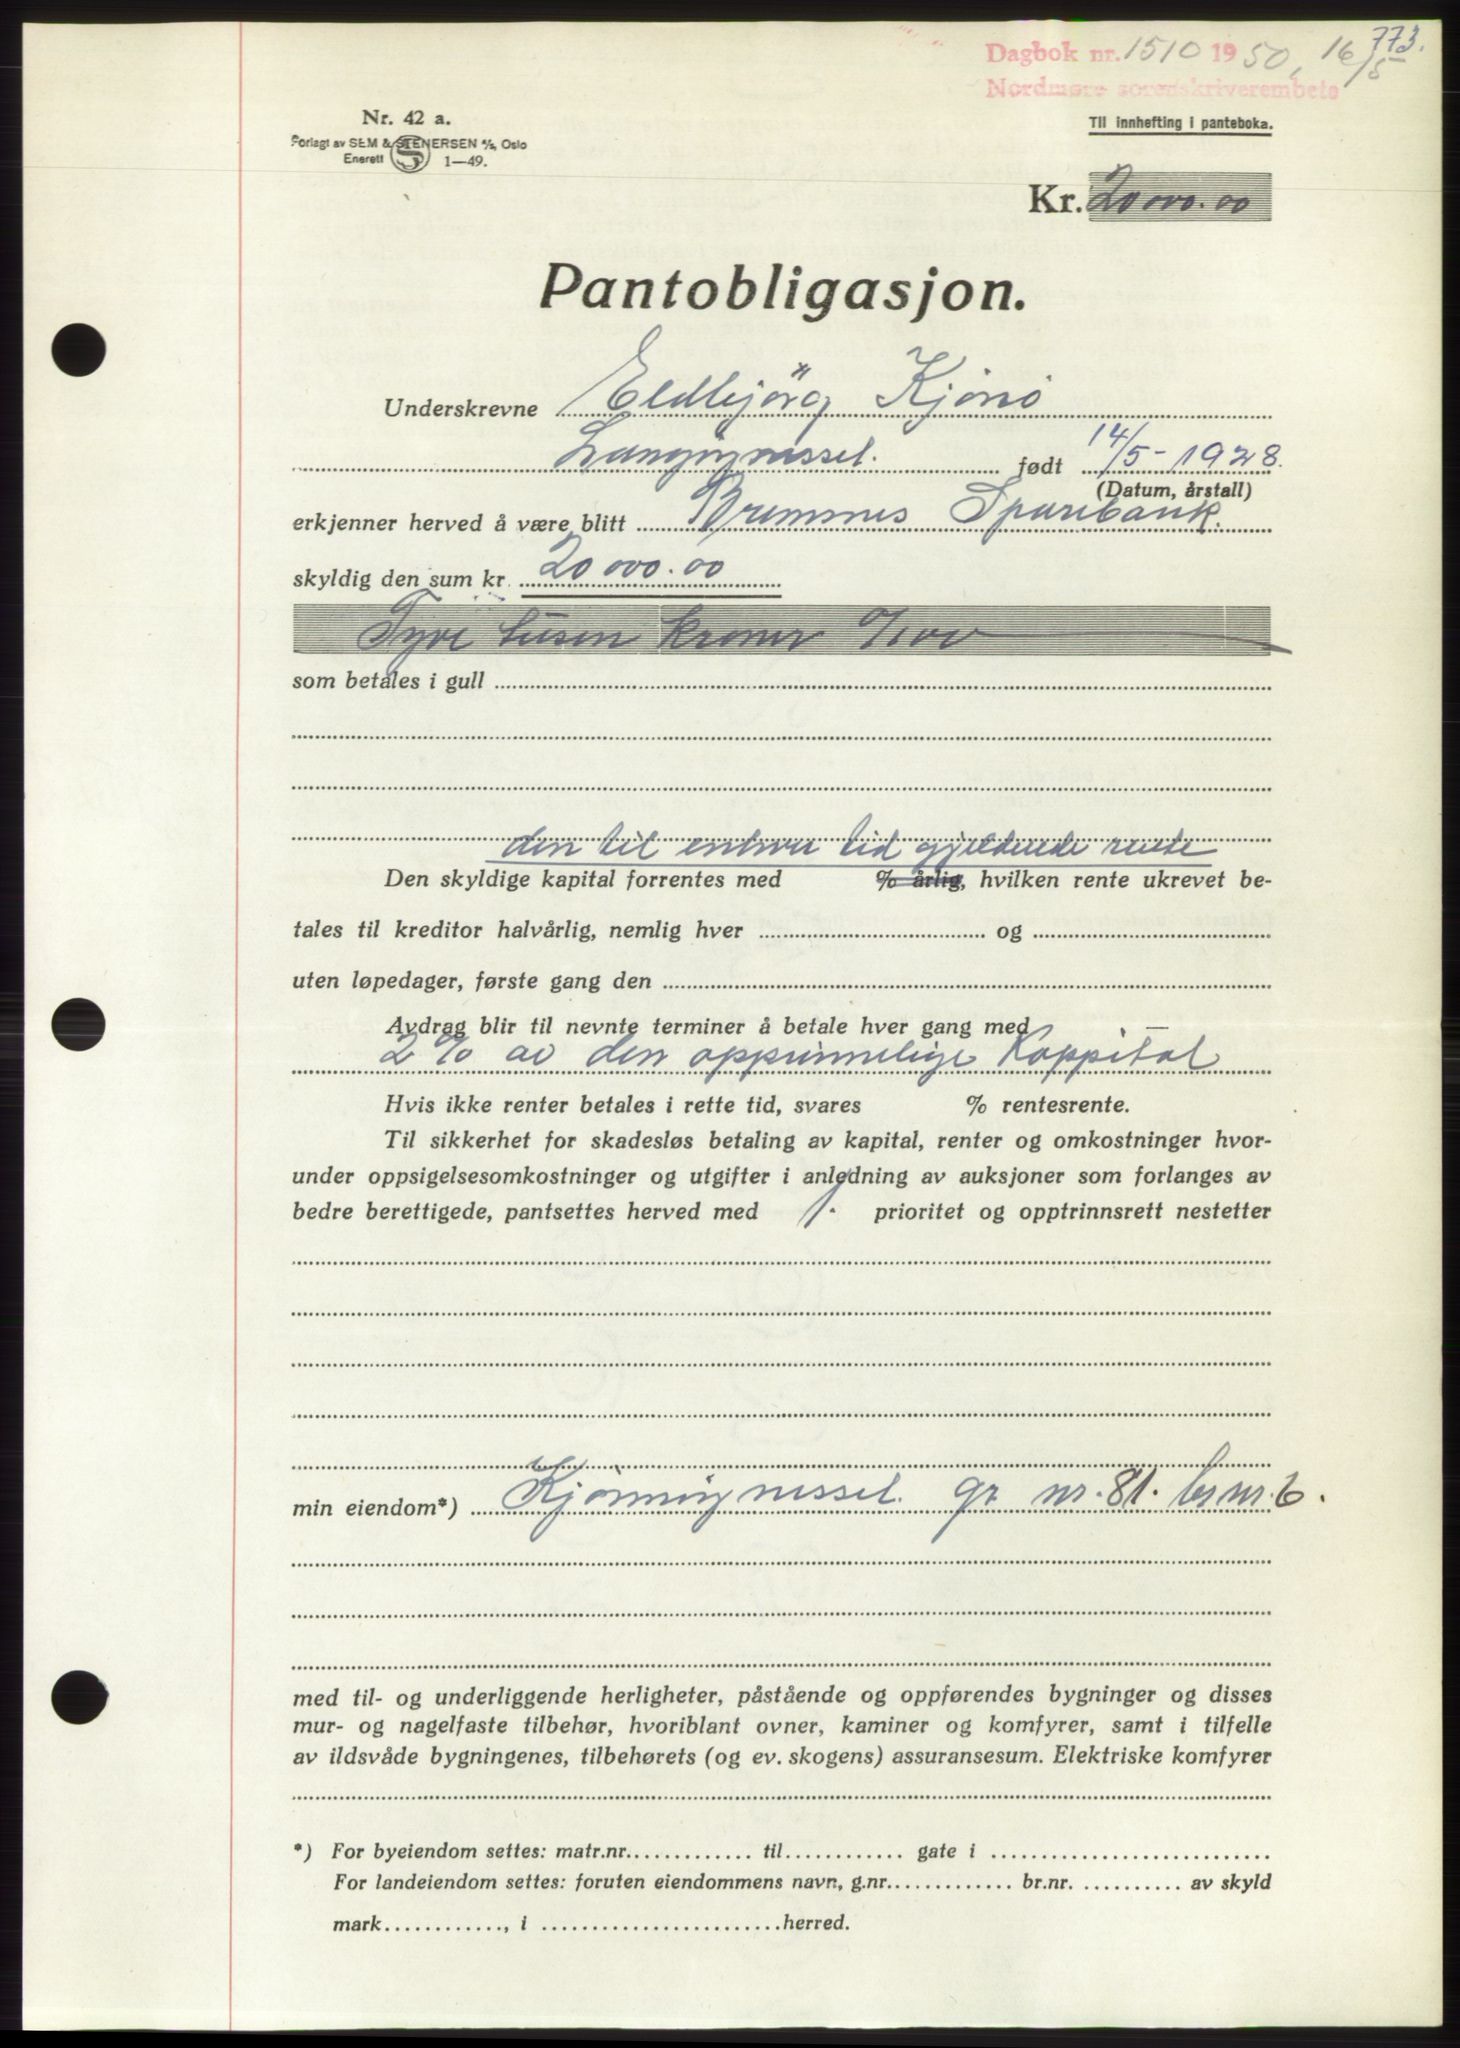 773.
Dagbok nr. 1510 1950, 16/5
Nordmøre sorenskriverembete
Nr. 42 a.
Til innhefting i panteboka.
Forlagt av SEM & STENERSEN A/S, Oslo
Enerett S 1—49.
Kr. 20 000.00
Pantobligasjon.
Underskrevne Eldbjörg Kjönö
Langöyneset. født 14/5-1928.
(Datum, årstall)
erkjenner herved å være blitt Bremsnes Sparebank.
skyldig den sum kr. 20 000.00
Tyve tusen kroner 0/100
som betales i gull
den til enhver tid gjeldende rente
Den skyldige kapital forrentes med % årlig, hvilken rente ukrevet be-
tales til kreditor halvårlig, nemlig hver og
uten løpedager, første gang den
Avdrag blir til nevnte terminer å betale hver gang med
2 % av den oppinnelige Kappital
Hvis ikke renter betales i rette tid, svares % rentesrente.
Til sikkerhet for skadesløs betaling av kapital, renter og omkostninger hvor-
under oppsigelsesomkostninger og utgifter i anledning av auksjoner som forlanges av
bedre berettigede, pantsettes herved med 1. prioritet og opptrinnsrett nestetter
min eiendom*) gr nr. 81. br nr. 6.
med til- og underliggende herligheter, påstående og oppførendes bygninger og disses
mur- og nagelfaste tilbehør, hvoriblant ovner, kaminer og komfyrer, samt i tilfelle
av ildsvåde bygningenes, tilbehørets (og ev. skogens) assuransesum. Elektriske komfyrer
*) For byeiendom settes: matr.nr. til gate i
For landeiendom settes: foruten eiendommens navn, g.nr. br.nr. av skyld
mark , i herred.